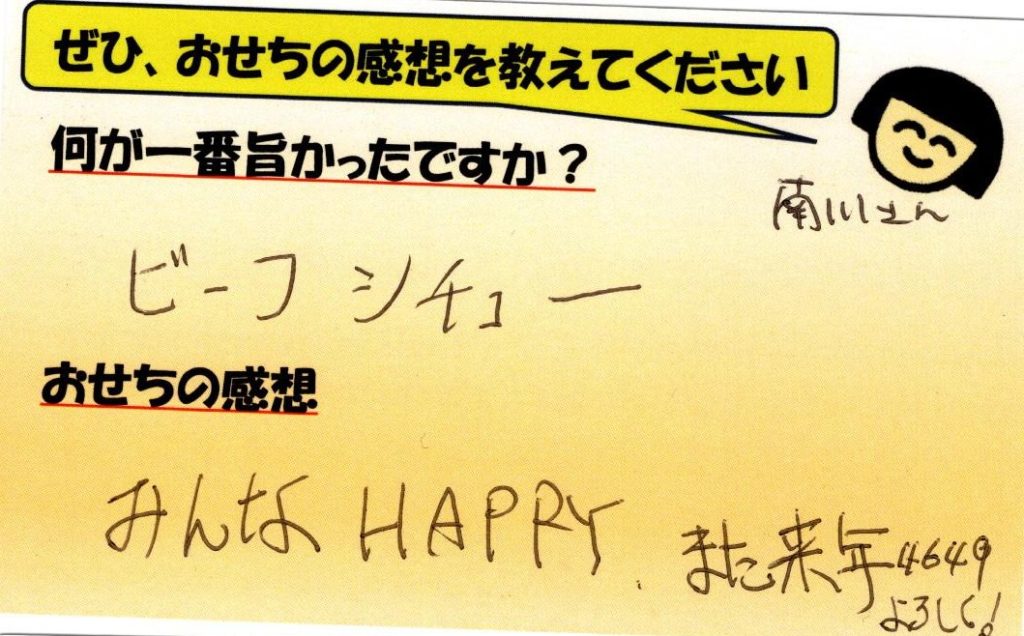 ぜひ、おせちの感想を教えてください
何が一番旨かったですか？
南川さん
ビーフシチュー
おせちの感想
みんな HAPPY、また来年4649
よろしく!